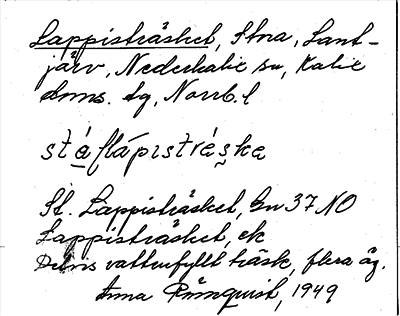 Lappisträsket, Stora, Lant-
järv, Nederkalix sn, Kalix
doms. tg, Norrb. l
stá flápıstrǽska
St. Lappisträsket, Gn 37 NO
Lappisträsket, ek
Delvis vattenfyllt träsk, flera äg.
Anna Rönnquist, 1949